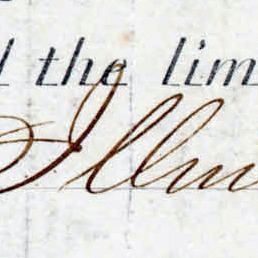 the lim
Illin